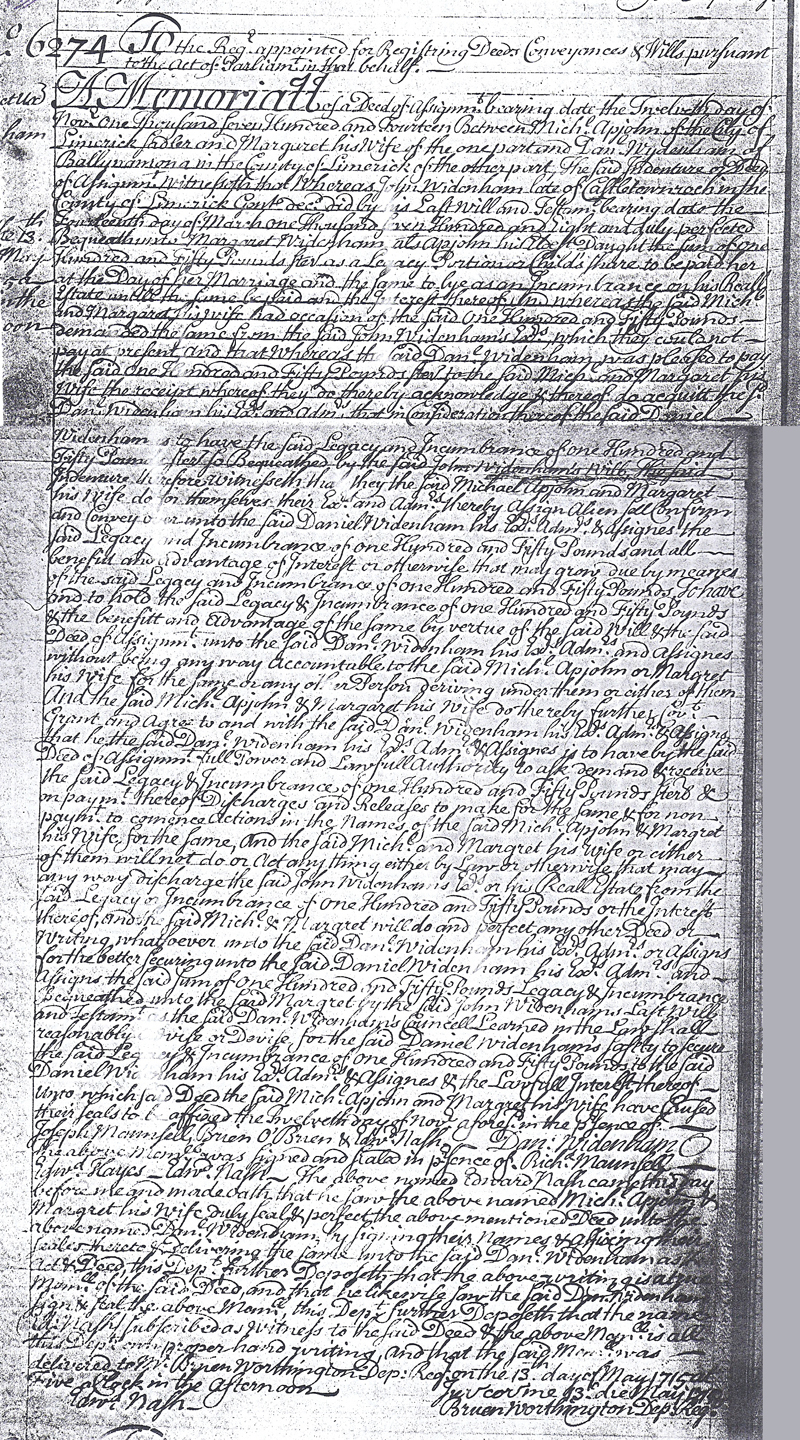 6274 To the Regr. appointed for Registring Deeds Conveyances & Wills pursuant
to the Act of Parliamt. in that behalf.
A Memoriall of a Deed of Assignmt. bearing date the Twelveth day of
Novr. One Thousand Seven Hundred and Fourteen Between Mich. Apjohn of the City of
Limerick Sadler and Margaret his Wife of the one part and Dan. Wydenham of
Ballynamona in the County of Limerick of the other part, The said Indenture or Deed
of Assignmt. Witnesseth that Whereas John Widenham late of Castletownroch in the
County of Limerick Gentn. decd. did by his Last Will and Testamt. bearing date the
Fourteenth day of March One Thousand Seven Hundred and Eight and duly perfected
Bequeath unto Margaret Widenham als Apjohn his Daught. the sum of One
Hundred and Fifty Pounds ster. as a Legacy Portion or Child's share to be paid her
at the Day of her Marriage and the same to lye as an Incumbrance on his Reall
Estate untill the same be paid and the Interest thereof And whereas the said Mich.
and Margaret his wife had occasion of the said One Hundred and Fifty Pounds
demanded the same from the said John Widenham's Exrs. which they could not
pay at present, and that Whereas the said Danl. Widenham was pleased to pay
the said One Hundred and Fifty Pounds sterl. to the said Mich. and Margaret his
Wife the receipt whereof they do thereby acknowledge & thereof do acquitt the sd.
Danl. Widenham his Exrs. and Admrs. that in Consideration thereof the said Daniel
Widenham is to have the said Legacy and Incumbrance of one Hundred and
Fifty Pounds sterl. so Bequeathed by the said John Widenham's Will, the said
Indenture therefore Witnesseth that they the said Michael Apjohn and Margaret
his Wife do for themselves their Exrs. and Admrs. thereby Assign Alien sell Confirm
and Convey over unto the said Daniel Widenham his Exrs. Admrs. & Assignes the
said Legacy and Incumbrance of one Hundred and Fifty Pounds and all
benefit and advantage of Interest or otherwise that may grow due by means
of the said Legacy and Incumbrance of one Hundred and Fifty Pounds, To have
and to hold the said Legacy & Incumbrance of one Hundred and Fifty Pounds
& the benefitt and Advantage of the same by vertue of the said Will & the said
Deed of Assignmt. unto the said Danl. Widenham his Exrs. Admrs. and Assignes
without being any way accountable to the said Mich. Apjohn or Margret
his Wife for the same or any other Person deriving under them or either of them
And the said Mich. Apjohn & Margaret his Wife do thereby further Covt.
Grant and Agree to and with the said Danl. Widenham his Exrs. Admrs. & Assigns
that he the said Danl. Widenham his Exrs. Admrs. & Assignes is to have by the said
Deed of Assignmt. full Power and Lawfull Authority to ask demand & receive
the said Legacy & Incumbrance of one Hundred and Fifty Pounds sterl. &
on paymt. thereof Discharges and Releases to make for the same & for non
paymt. to comence Actions in the Names of the said Mich. Apjohn & Margret
his Wife, for the same, And the said Mich. and Margret his Wife or either
of them will not do or Act any thing either by Law or otherwise that may
any way discharge the said John Widenham's Exrs. or his Reall Estate from the
said Legacy or Incumbrance of one Hundred and Fifty Pounds or the Interest
thereof, and the said Mich. & Margret will do and perfect any other Deed or
Writing whatsoever unto the said Danl. Widenham his Exrs. Admrs. or Assigns
for the better securing unto the said Daniel Widenham his Exrs. Admrs. and
Assigns the said sum of One Hundred and Fifty Pounds Legacy & Incumbrance
Bequeathed unto the said Margret by the said John Widenham's Last Will
and Testamt. as the said Danl. Widenham's Councell Learned in the Law shall
reasonably advise or Devise, for the said Daniel Widenham's safety to secure
the said Legacy & Incumbrance of one Hundred and Fifty Pounds to the said
Daniel Widenham his Exrs. Admrs. & Assignes & the Lawfull Interest thereof
Unto which said Deed the said Mich. Apjohn and Margret his Wife have caused
their seals to be affixed the Twelveth day of Novr. aforesd. in the presence of
Joseph Maunsell, Brien O'Brien & Edwd. Nash Dan: Widenham
the above Meml. was signed and sealed in presence of Richd. Maunsell
Edwd. Hayes Edwd. Nash The above named Edward Nash came this day
before me and made oath that he saw the above named Mich. Apjohn &
Margret his Wife duly seal & perfect the above mentioned Deed unto the
above named Danl. Widenham by signing their Names & affixing their
seales thereto & delivering the same unto the said Danl. Widenham as their
Act & Deed this Dept. further Deposeth that the above writing is a true
Memll. of the said Deed, and that he likewise saw the said Dan Widenham
sign & seal the above Memll. this Dept. further Deposeth that the name
Edwd. Nash subscribed as Witness to the said Deed & the above Meml. is all
this Depts. own proper hand writing, and that the said Meml. was
delivered to Mr. Bruen Worthington Dep. Regr. on the 13th. day of May 1715 at
Five a Clock in the afternoon
Edwd. Nash Jur coram me 13o. die May 1715
Bruen Worthington Dep. Regr.